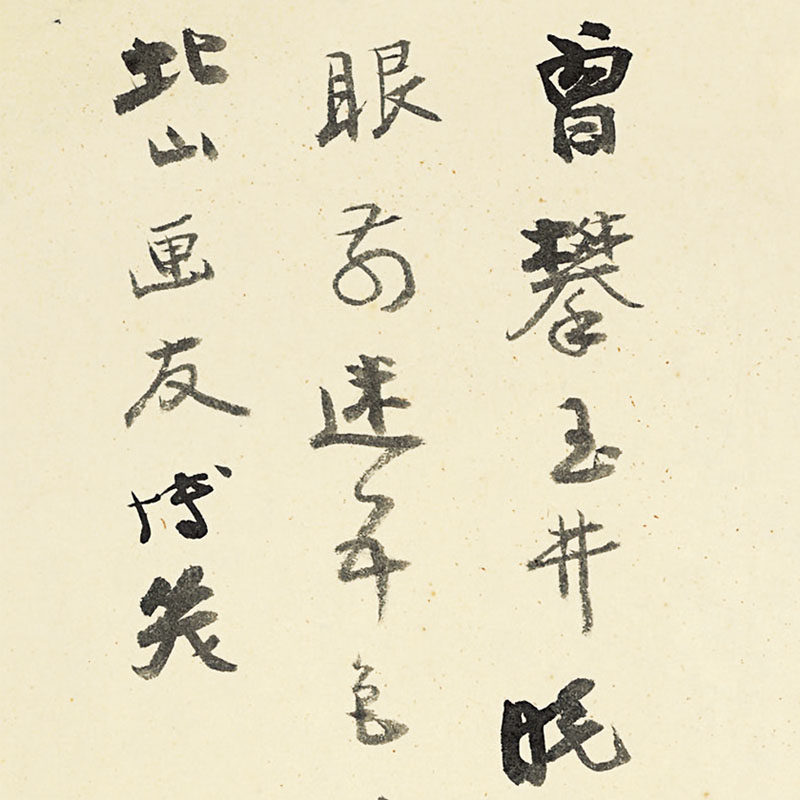 曾攀玉井
眼前迷色
北山画友博笑